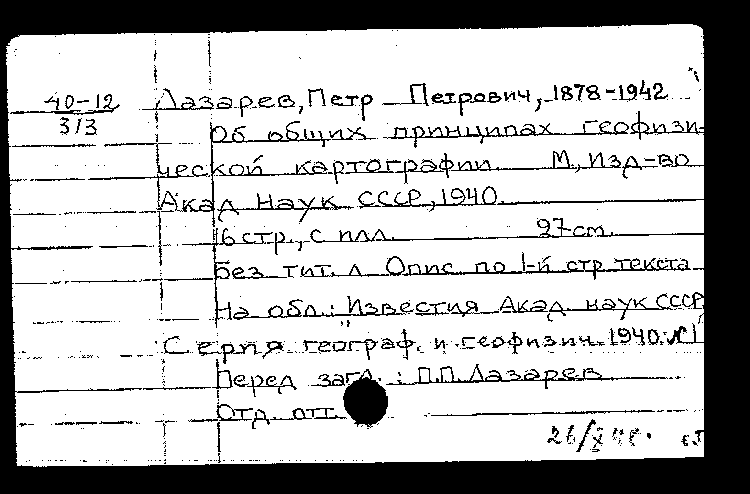 40-12
313
Лазарев, Петр Петрович, 1878-1942
Об общих принципах геофизи-
ческой картографии. М., Изд-во
Акад Наук СССР, 1940.
16 стр., с илл. 27 cm.
Без тит. л Опис. по 1-й стр текста
На обл.: "Известия Акад. наук СССР
Серия географ. и геофизич. 1940. №1
Перед загл.: П.П. Лазарев
Отд. отт.